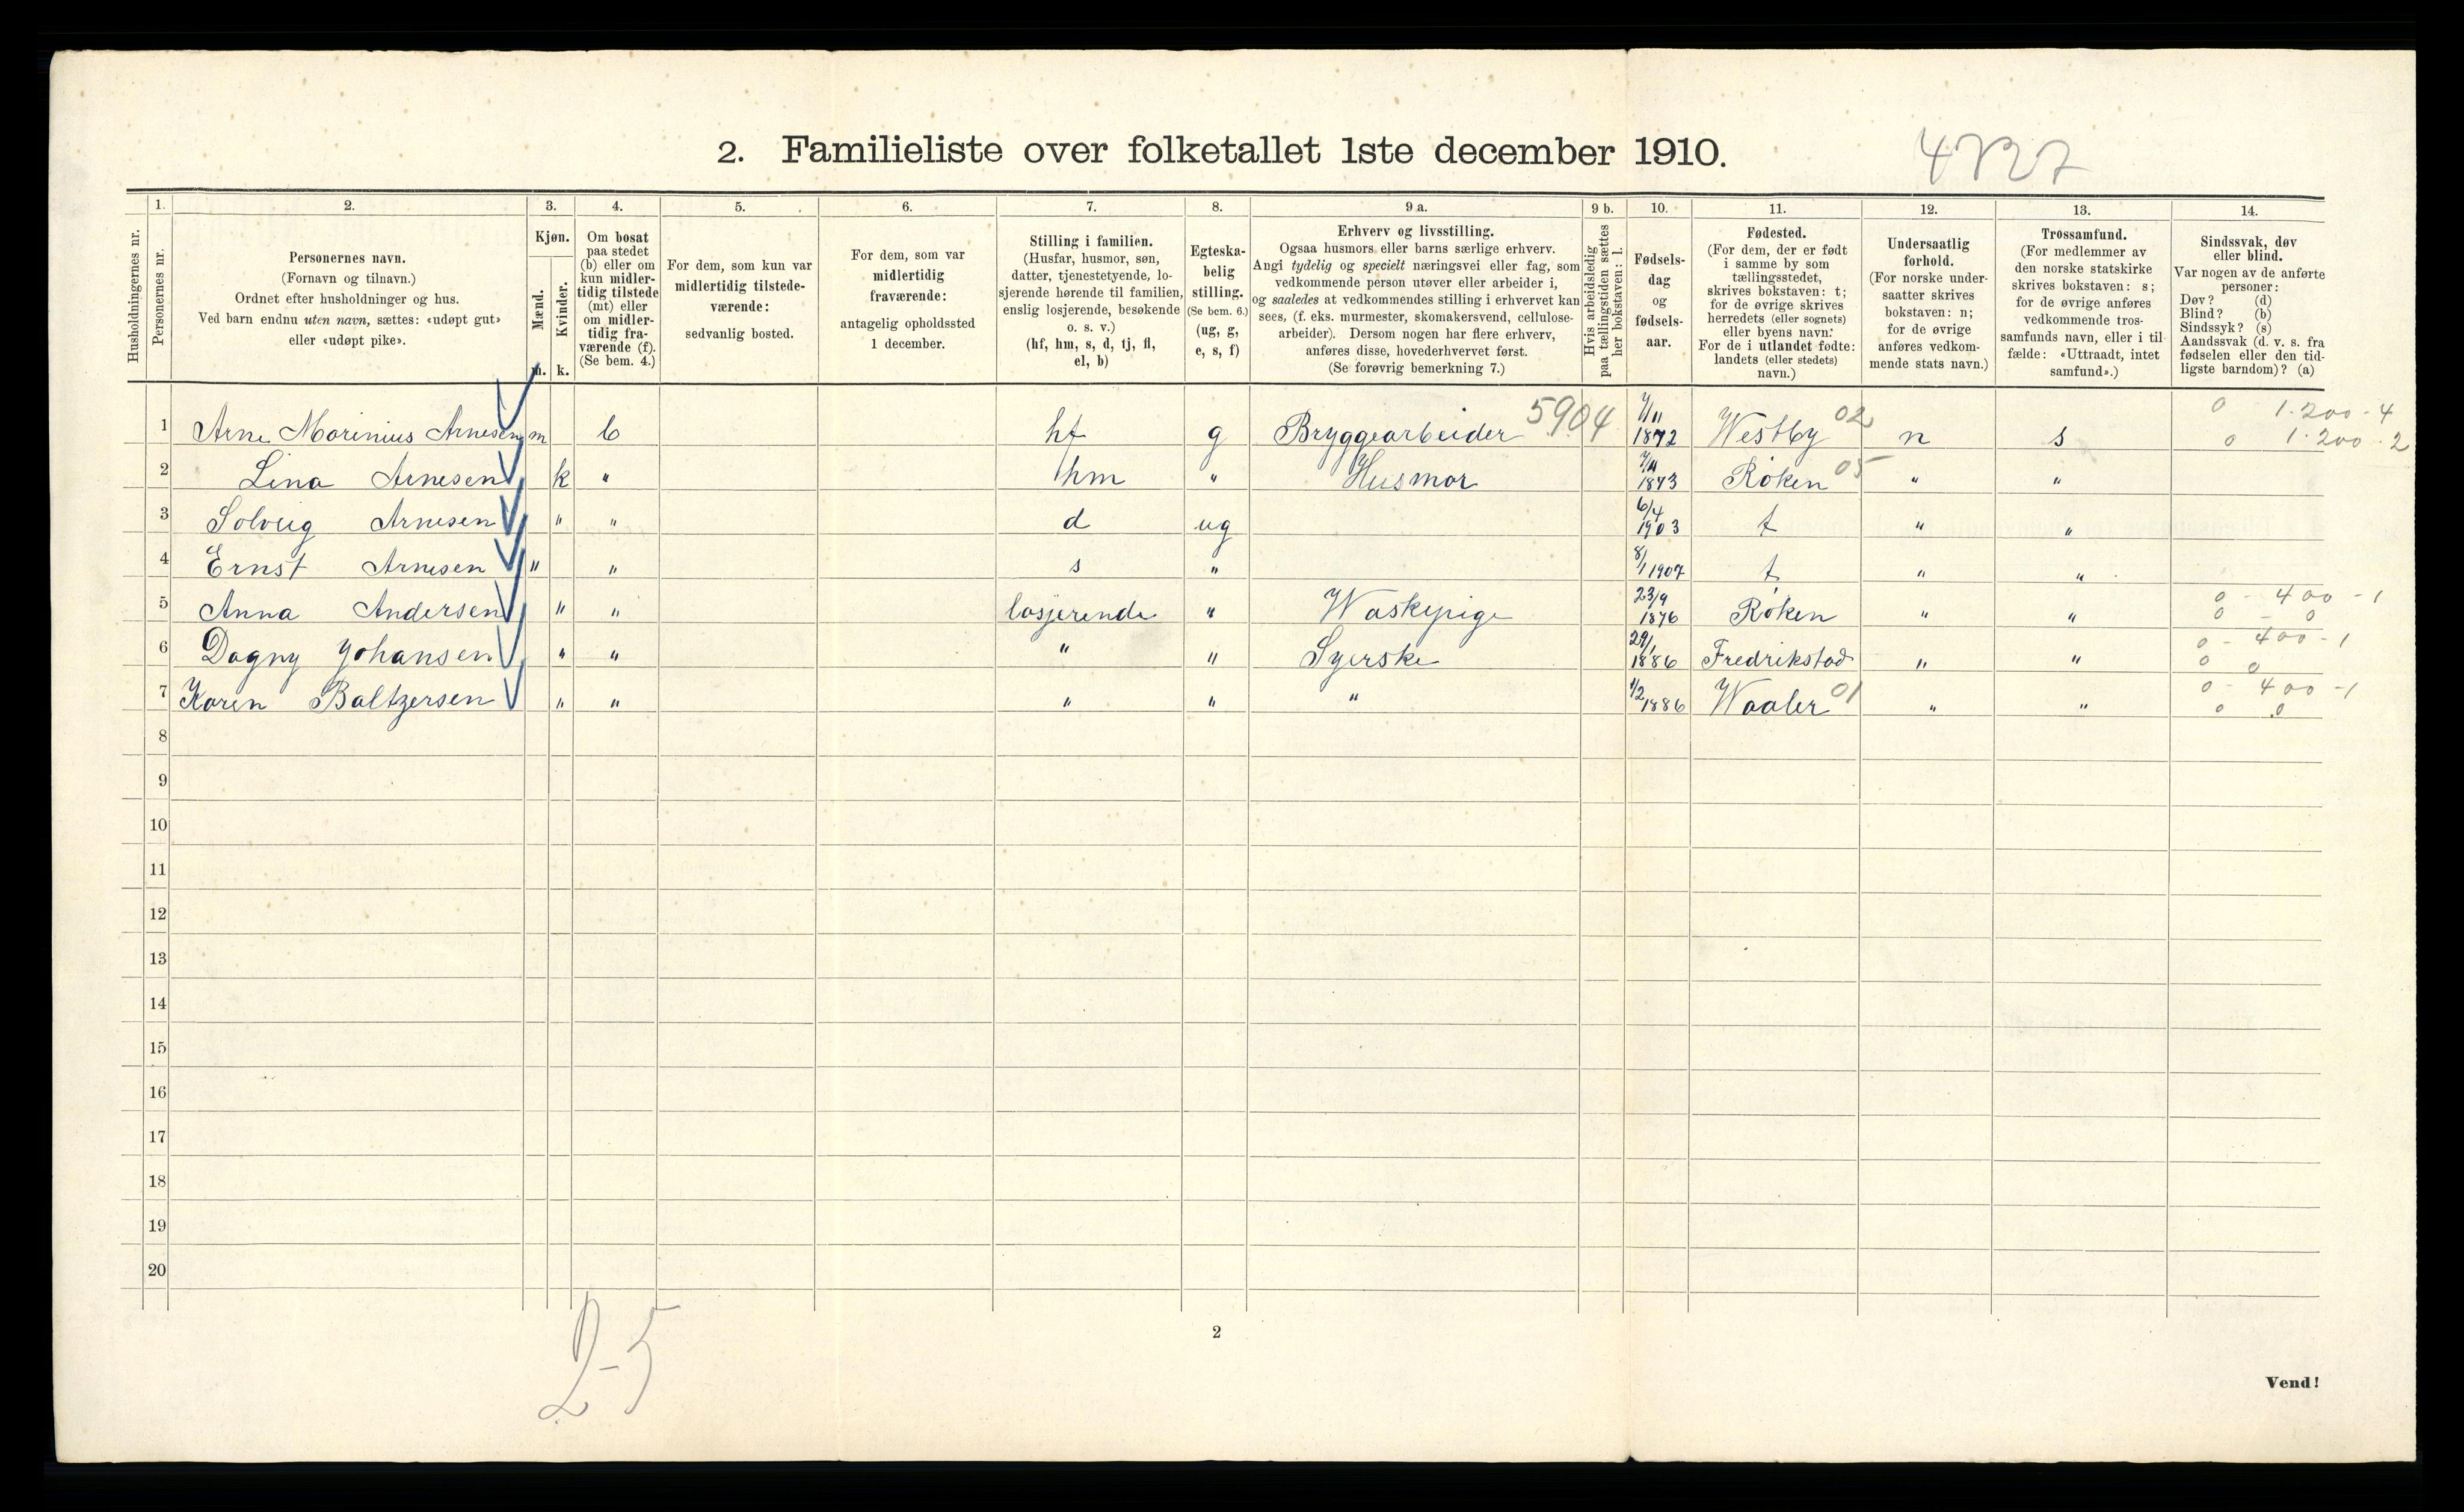 2. Familieliste over folketallet 1ste december 1910.
4727
Husholdningernes nr.
1. Personernes nr.
2. Personernes navn. (Fornavn og tilnavn.) Ordnet efter husholdninger og hus. Ved barn endnu uten navn, sættes: «udøpt gut» eller «udøpt pike».
3. Kjøn. Mænd. m. Kvinder. k.
4. Om bosat paa stedet (b) eller om kun midlertidig tilstede (mt) eller om midlertidig fraværende (f). (Se bem. 4.)
5. For dem, som kun var midlertidig tilstedeværende: sedvanlig bosted.
6. For dem, som var midlertidig fraværende: antagelig opholdssted 1 december.
7. Stilling i familien. (Husfar, husmor, søn, datter, tjenestetyende, losjerende hørende til familien, enslig losjerende, besøkende o. s. v.) (hf, hm, s, d, tj, fl, el, b)
8. Egteskabelig stilling. (Se bem. 6.) (ug, g, e, s, f)
9 a. Erhverv og livsstilling. Ogsaa husmors eller barns særlige erhverv. Angi tydelig og specielt næringsvei eller fag, som vedkommende person utøver eller arbeider i, og saaledes at vedkommendes stilling i erhvervet kan sees, (f. eks. murmester, skomakersvend, cellulosearbeider). Dersom nogen har flere erhverv, anføres disse, hovederhvervet først. (Se forøvrig bemerkning 7.)
9 b. Hvis arbeidsledig paa tællingstiden sættes her bokstaven: l.
10. Fødselsdag og fødselsaar.
11. Fødested. (For dem, der er født i samme by som tællingsstedet, skrives bokstaven: t; for de øvrige skrives herredets (eller sognets) eller byens navn. For de i utlandet fødte: landets (eller stedets) navn.)
12. Undersaatlig forhold. (For norske undersaatter skrives bokstaven: n; for de øvrige anføres vedkommende stats navn.)
13. Trossamfund. (For medlemmer av den norske statskirke skrives bokstaven: s; for de øvrige anføres vedkommende trossamfunds navn, eller i tilfælde: «Uttraadt, intet samfund».)
14. Sindssvak, døv eller blind. Var nogen av de anførte personer: Døv? (d) Blind? (b) Sindssyk? (s) Aandssvak (d. v. s. fra fødselen eller den tidligste barndom)? (a)
1 Arne Marinius Arnesen m b hf g Bryggearbeider 5904 7/11 1872 Westby 02 n s 0 1.200-4 0 1.200.2
2 Lina Arnesen k " hm " Husmor 7/11 1873 Røken 05 " "
3 Solveig Arnesen " " d ug 6/4 1903 t " "
4 Ernst Arnesen " " s " 8/1 1907 t " "
5 Anna Andersen " " losjerende " Waskepige 23/9 1876 Røken " " 0-400-1 0-0
6 Dagny Johansen " " " " Syerske 29/1 1886 Fredrikstad " " 0-400-1 0 0
7 Karen Baltzersen " " " " " 1/2 1886 Waaler 01 " " 0-400-1 0 0
8
9
10
11
12
13
14
15
16
17
18
19
20
2-5
2
Vend!